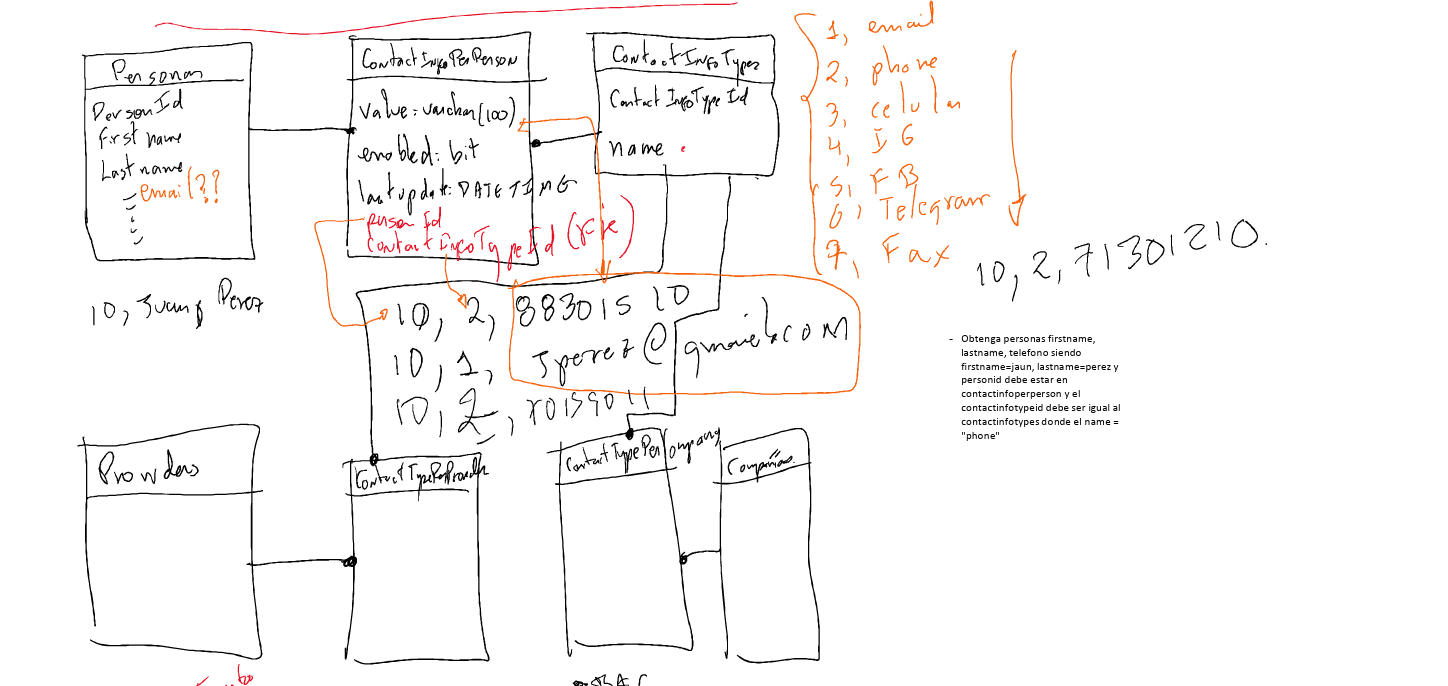 Personas
PersonId
first name
Last name
email??
10, Juan, Perez
ContactInfoPerPerson
value: varchar(100)
enabled: bit
lastupdate: DATETIME
person Id
ContactInfoTypeId (FK)
ContactInfoTypes
ContactInfoTypeId
name
1, email
2, phone
3, celular
4, IG
5, FB
6, Telegram
7, Fax
10, 2, 71301210.
10, 2, 883015 10
10, 1, Jperez@gmail.com
10, 2,
- Obtenga personas firstname,
lastname, telefono siendo
firstname=jaun, lastname=perez y
personid debe estar en
contactinfoperperson y el
contactinfotypeid debe ser igual al
contactinfotypes donde el name =
"phone"
Providers
ContactTypePerProvider
ContactTypePerCompany
Compañias